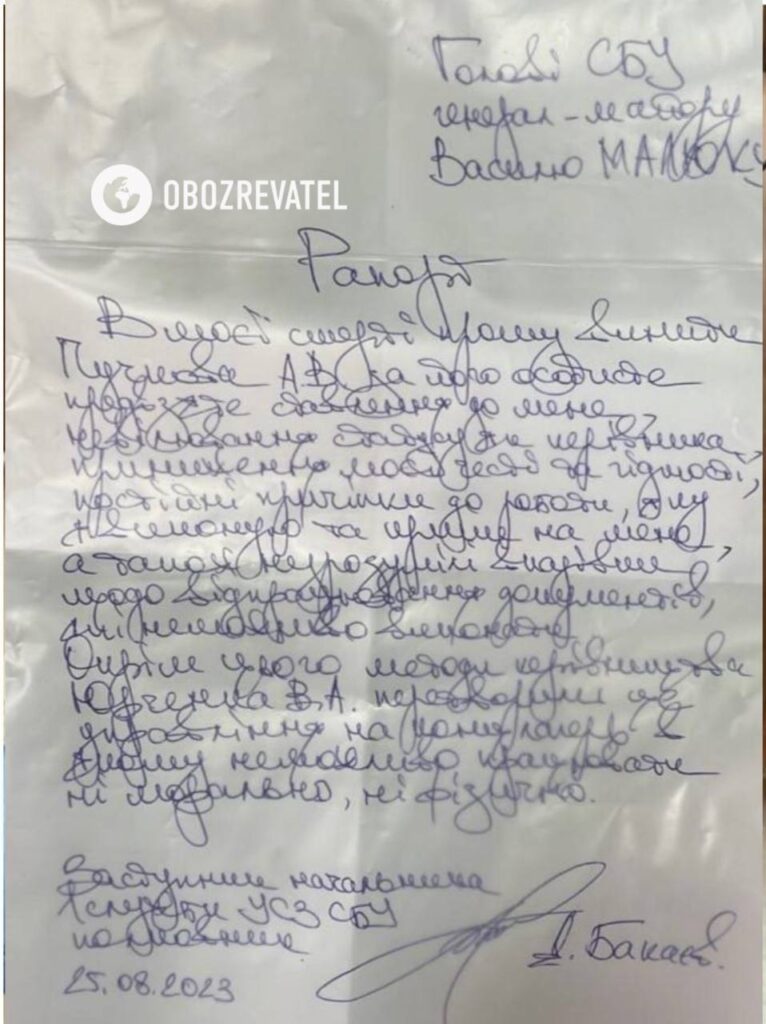 Голові СБУ
генерал-майору
Василю МАЛЮКУ
OBOZREVATEL
Рапорт
В моєї смерті прошу винити
А.В. за його особисте
предвзяте ставлення до мене,
нівілювання статусу як керівника,
приниження моєї честі та гідності,
постійні причіпки до роботи, яку
я виконую та крики на мене,
а також незрозумілі вказівки
щодо відпрацювання документів,
які неможливо виконати.
Окрім цього методи керівництва
Юрченка В.А. перетворили
управління на концлагерь в
якому неможливо працювати
ні морально, ні фізично.
Заступник начальника
1 служби УСЗ СБУ
полковник
25.08.2023
Бакаєв.